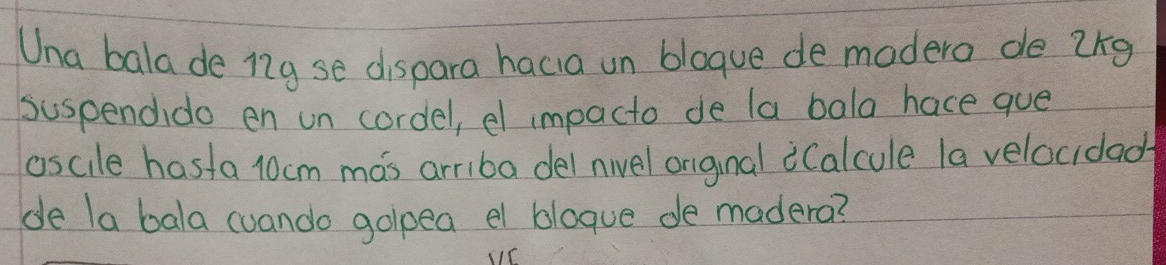 Una bala de 12g se dispara hacia un bloque de madera de 2kg
suspendido en un cordel, el impacto de la bala hace que
oscile hasta 10cm más arriba del nivel original ¿Calcule la velocidad
de la bala cuando golpea el bloque de madera?